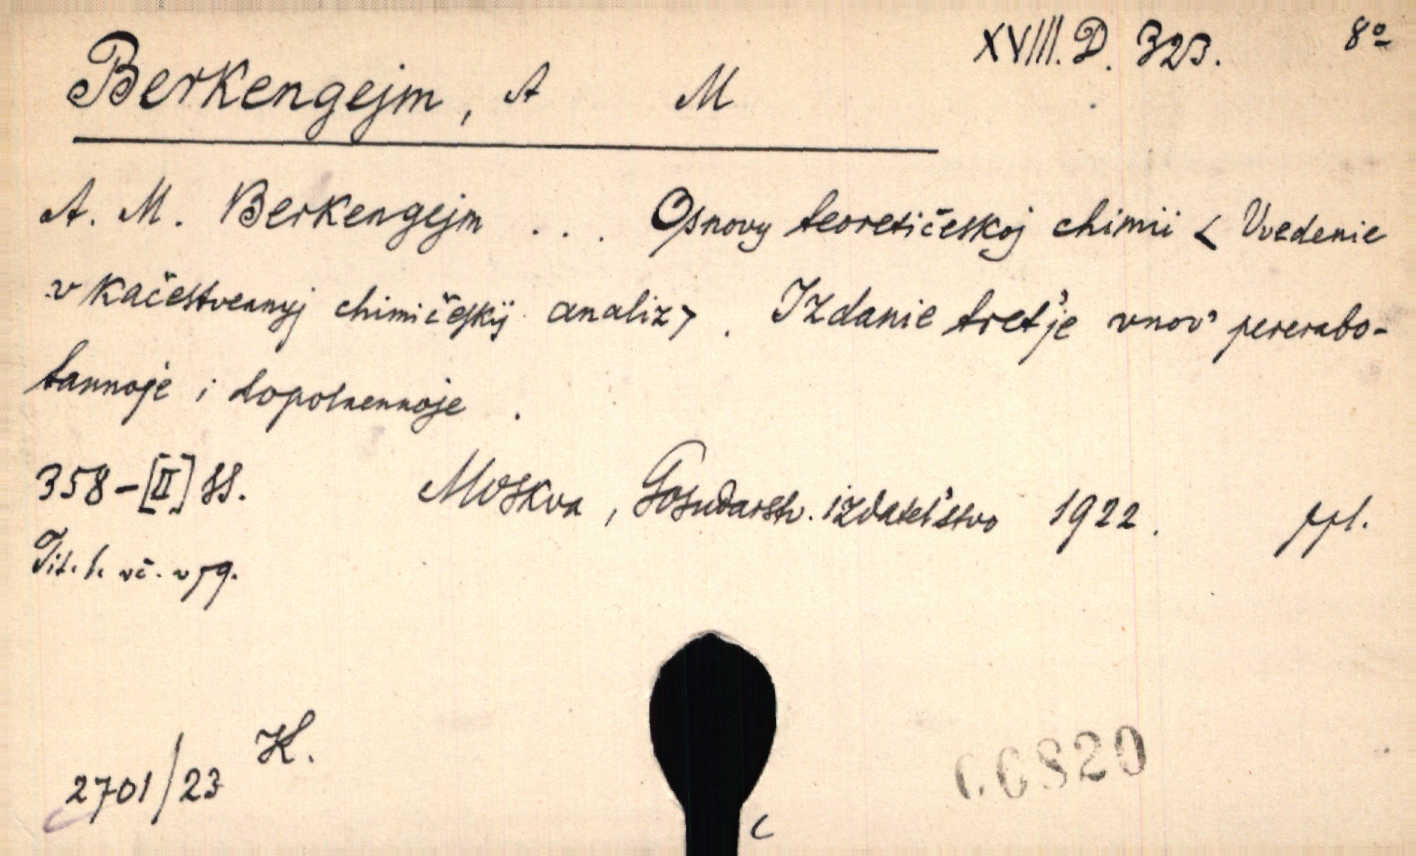 XVIII. D. 323. 8º
Berkengejm, A M
A. M. Berkengejm ... Osnovy teoretičeskoj chimii < Vvedenie
v kačestvennyj chimičeskij analiz>. Izdanie tret'je vnov' pererabo-
tannoje i dopolnennoje.
358-[II] SS. Moskva, Gosudarstv. izdatel'stvo 1922. ppl.
Tit. l. vč. v pg.
2701/23 K.
6820
c